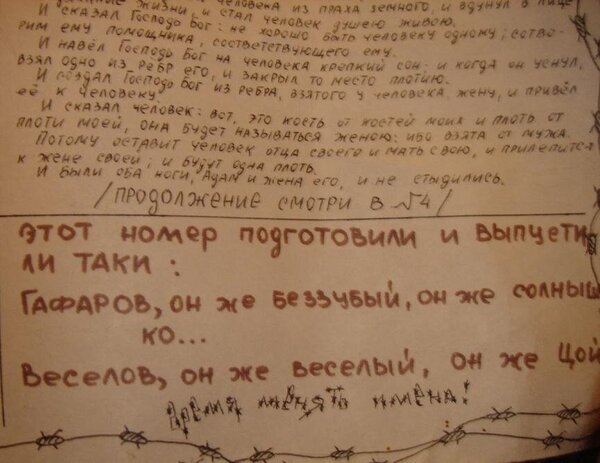 человека из праха земного, и вдунул в лице
жизни, и стал человек душею живою.
И сказал Господь Бог: не хорошо быть человеку одному; сотво-
рим ему помощника, соответствующего ему.
И навёл Господь Бог на человека крепкий сон; и когда он уснул,
взял одно из рёбр его, и закрыл то место плотию.
И создал Господь Бог из ребра, взятого у человека, жену, и привёл
её к человеку.
И сказал человек: вот, это кость от костей моих и плоть от
плоти моей, она будет называться женою: ибо взята от мужа.
Потому оставит человек отца своего и мать свою, и прилепится
к жене своей; и будут одна плоть.
И были оба ноги, Адам и жена его, и не стыдились.
/ПРОДОЛЖЕНИЕ СМОТРИ В №4/
ЭТОТ НОМЕР ПОДГОТОВИЛИ И ВЫПУСТИ
ЛИ ТАКИ:
ГАФАРОВ, ОН ЖЕ БЕЗЗУБЫЙ, ОН ЖЕ СОЛНЫШ
КО...
ВЕСЕЛОВ, ОН ЖЕ ВЕСЕЛЫЙ, ОН ЖЕ ЦОЙ
ВРЕМЯ МЕНЯТЬ ИМЕНА!